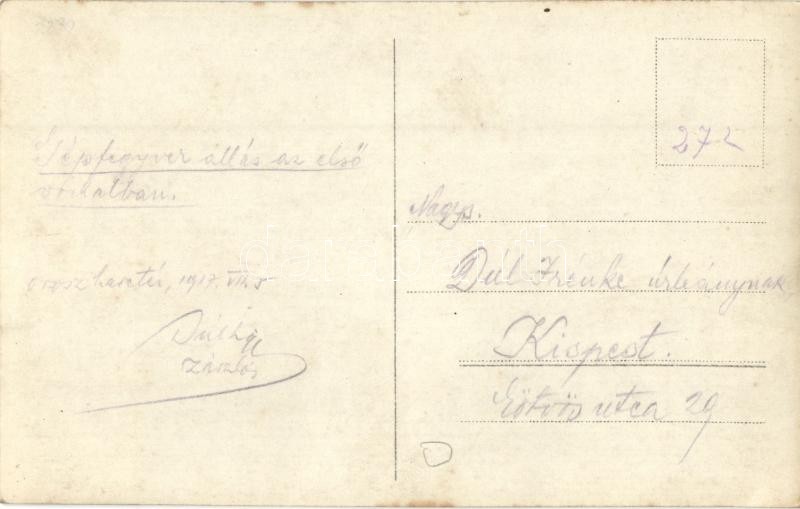 Gépfegyver állás az első
vonalban.
orosz harctér, 1917. VII. 5
zászlós
272
Nagys.
Dúl Irénke úrleánynak,
Kispest.
Eötvös utca 29